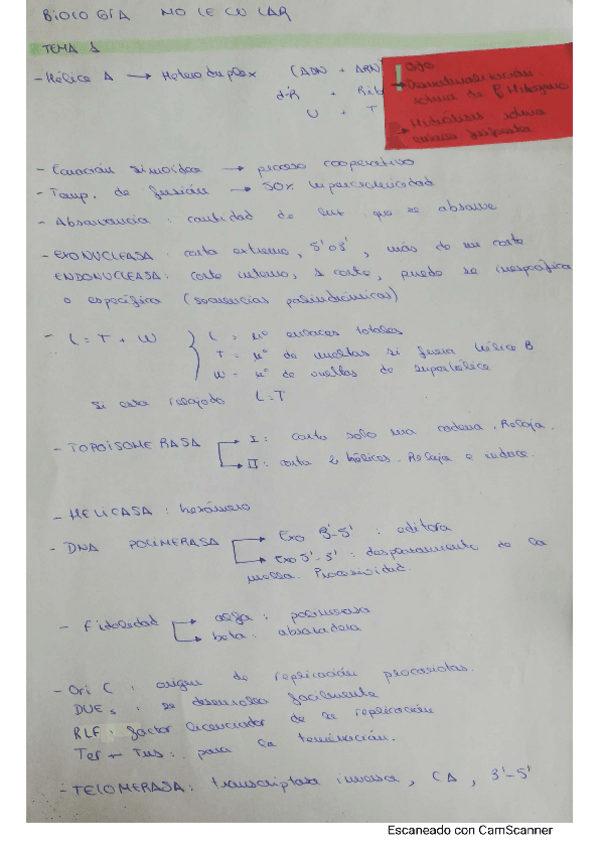 BIOLOGÍA MOLECULAR
TEMA 1
- Hélice A → Heteroduplex (ADN + ARN)
d-R + Rib
U + T
! OJO
→ Desnaturalización
→ Hidrólisis
- Ecuación simoidea → proceso cooperativo
- Temp. de fusión → 50% hipercromicidad
- Absorvancia : cantidad de luz que se absorve
- EXONUCLEASA : corta extremo, 5' o 3', más de un corte
ENDONUCLEASA : corte interno, 1 corte, puede se inespecifica
o específica (secuencias palindrómicas)
- L = T + W } L = nº enlaces totales
T = nº de vueltas si fuera hélice B
W = nº de vueltas de superhélice
Si esta relajado L = T
- TOPOISOMERASA → I : corta solo una cadena. Relaja.
→ II : corta 2 hélices. Relaja e induce.
- HELICASA : hexámero
- DNA POLIMERASA → Exo 3'-5' : editora
→ Exo 5'-3' : desplazamiento de la
mella. Procesividad.
- Fidelidad → alfa : polimerasa
→ beta :
- Ori C : origen de replicación procariotas.
DUE : se desenrolla facilmente
RLF : factor licenciador de la replicación
Ter - Tus : para la terminación.
- TELOMERASA : transcriptasa inversa, CA, 3'-5'
Escaneado con CamScanner